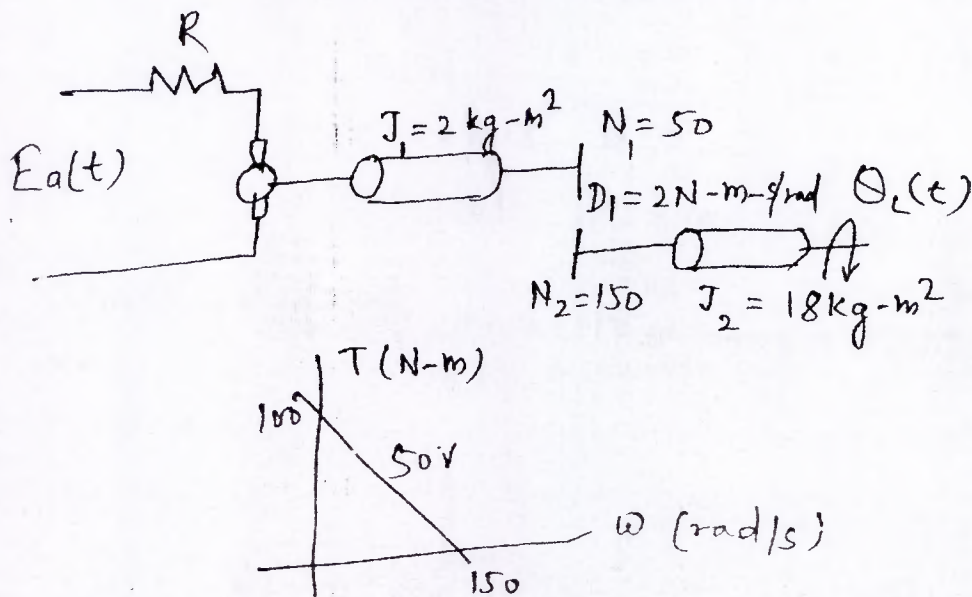 R
Ea(t)
J₁=2 kg-m²
N₁=50
D₁=2N-m-s/rad
θL(t)
N₂=150
J₂=18kg-m²
T(N-m)
100
50V
ω (rad/s)
150